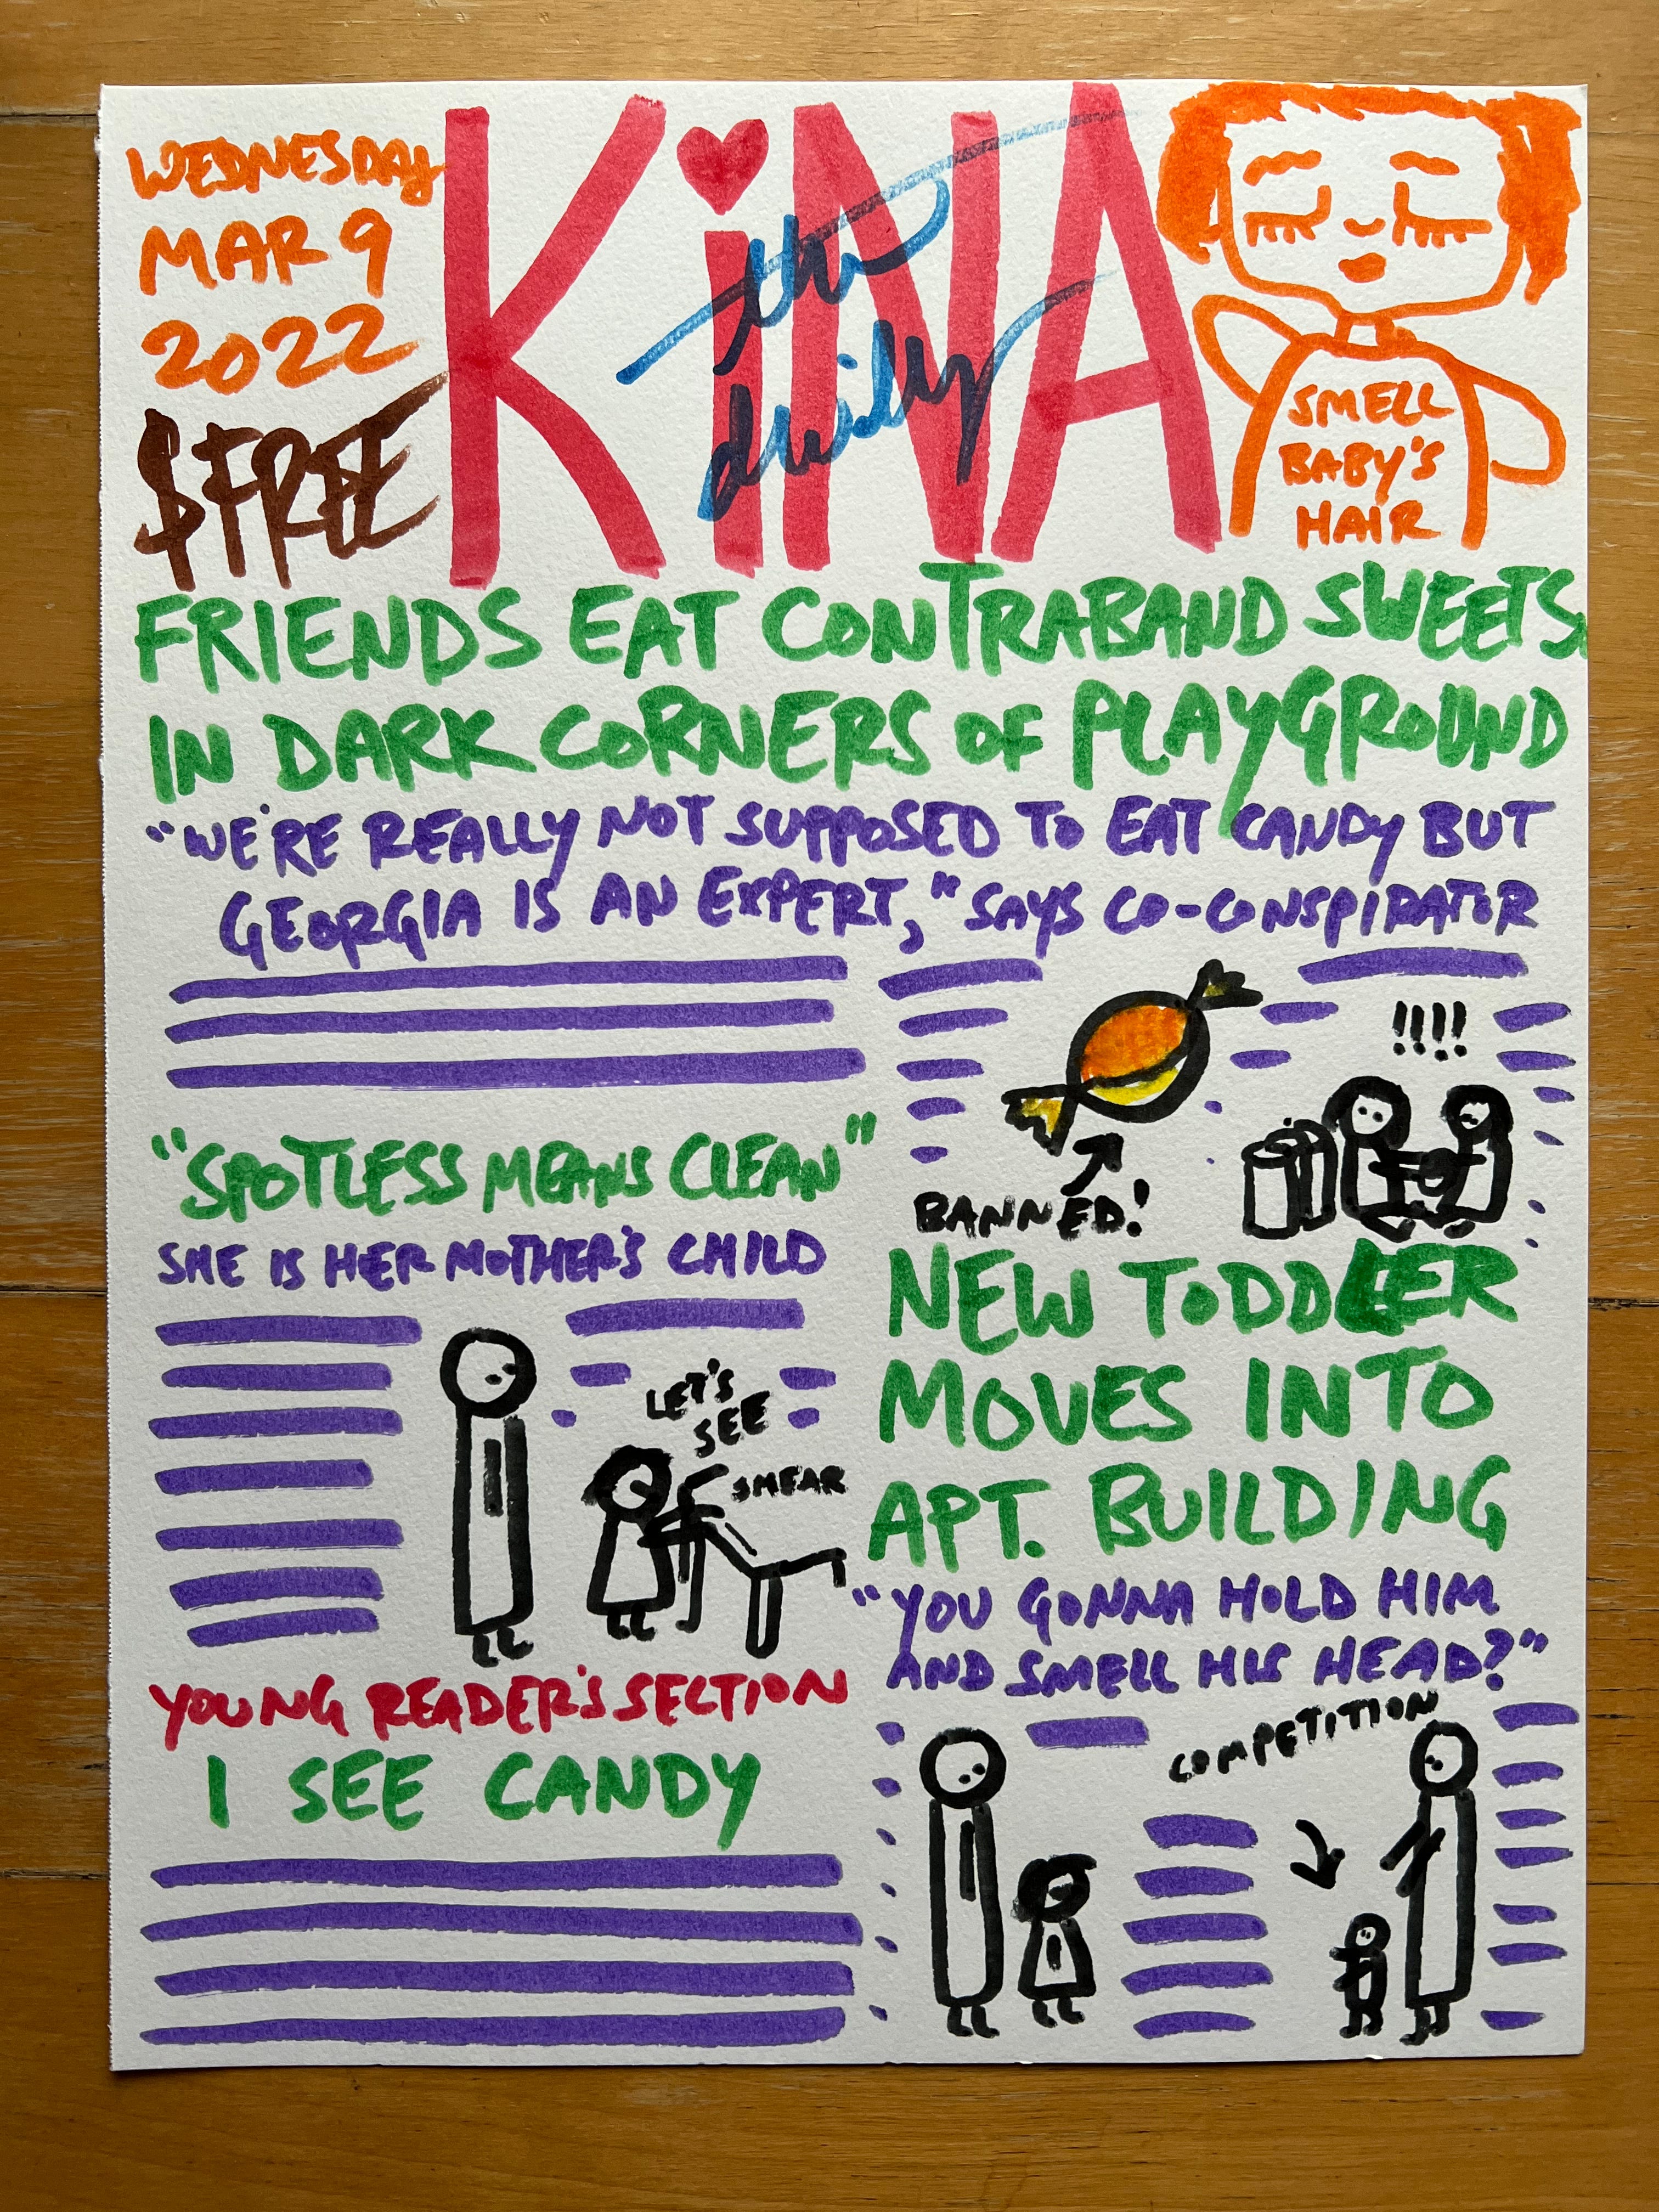 WEDNESDAY
MAR 9
2022
$FREE
KiNA
the
daily
SMELL
BABY'S
HAIR
FRIENDS EAT CONTRABAND SWEETS
IN DARK CORNERS OF PLAYGROUND
"WE'RE REALLY NOT SUPPOSED TO EAT CANDY BUT
GEORGIA IS AN EXPERT," SAYS CO-CONSPIRATOR
!!!!
BANNED!
"SPOTLESS MEANS CLEAN"
SHE IS HER MOTHER'S CHILD
LET'S
SEE
SMEAR
NEW TODDLER
MOVES INTO
APT. BUILDING
"YOU GONNA HOLD HIM
AND SMELL HIS HEAD?"
COMPETITION
YOUNG READER'S SECTION
I SEE CANDY